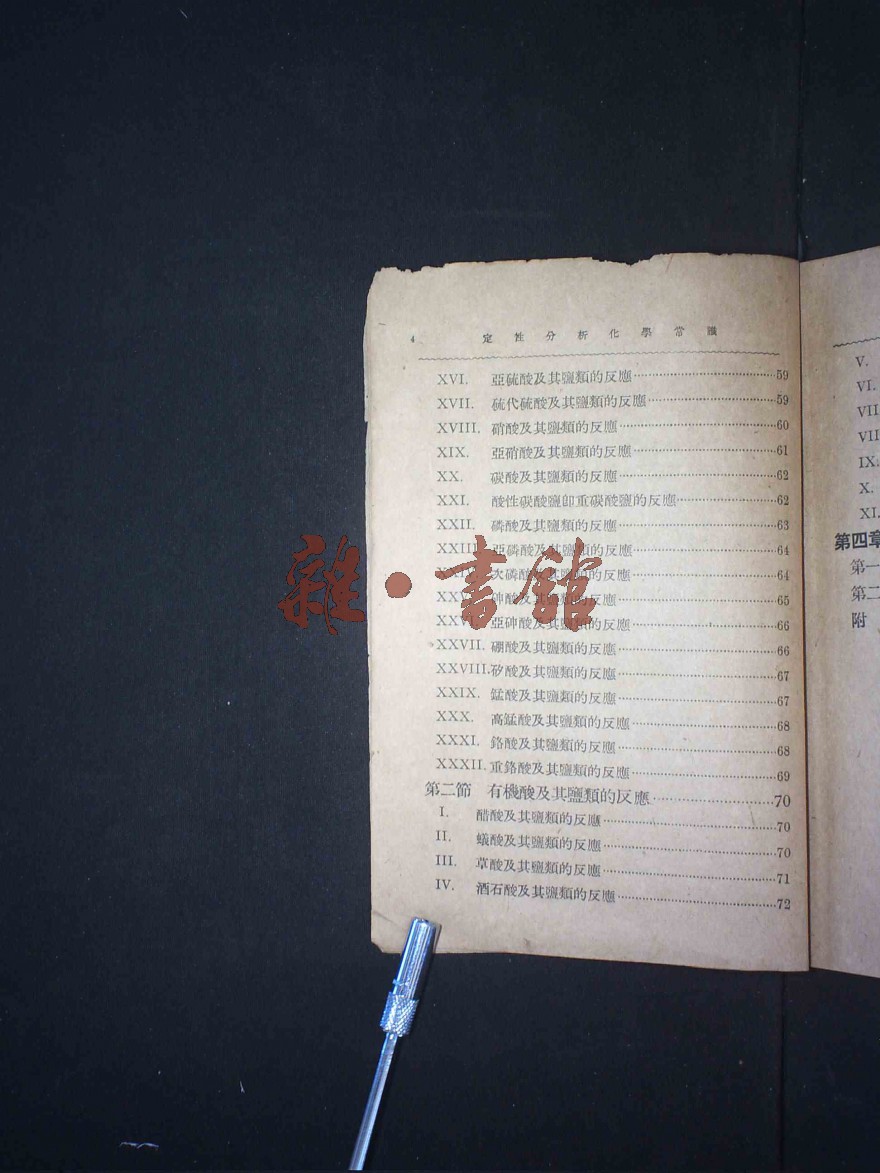 4 定性分析化學常識
XVI. 亞硫酸及其鹽類的反應 59
XVII. 硫代硫酸及其鹽類的反應 59
XVIII. 硝酸及其鹽類的反應 60
XIX. 亞硝酸及其鹽類的反應 61
XX. 碳酸及其鹽類的反應 62
XXI. 酸性碳酸鹽卽重碳酸鹽的反應 62
XXII. 磷酸及其鹽類的反應 63
XXIII. 亞磷酸及其鹽類的反應 64
次磷酸及其鹽類的反應 64
砷酸及其鹽類的反應 65
亞砷酸及其鹽類的反應 66
XXVII. 硼酸及其鹽類的反應 66
XXVIII. 矽酸及其鹽類的反應 67
XXIX. 錳酸及其鹽類的反應 67
XXX. 高錳酸及其鹽類的反應 68
XXXI. 鉻酸及其鹽類的反應 68
XXXII. 重鉻酸及其鹽類的反應 69
第二節 有機酸及其鹽類的反應 70
I. 醋酸及其鹽類的反應 70
II. 蟻酸及其鹽類的反應 70
III. 草酸及其鹽類的反應 71
IV. 酒石酸及其鹽類的反應 72
雜·書館
V.
VI.
VII
VII
IX.
X.
XI.
第四章
第一
第二
附